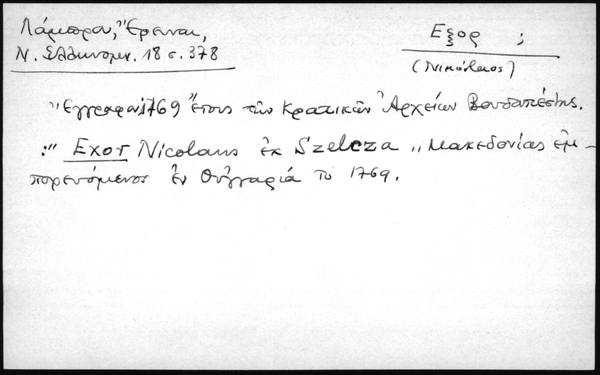 Λάμπρου, "Έρευναι,
Ν. Ἑλληνομν. 18 σ. 378
Εξορ ;
(Νικόλαος)
"Εγγραφα 1769 "έτους τῶν Κρατικῶν Ἀρχείων Βουδαπέστης.
:" Exor Nicolaus ἐκ Szelcza „ Μακεδονίας ἐμ-
πορευόμενος ἐν Οὑγγαρίᾳ τὸ 1769.